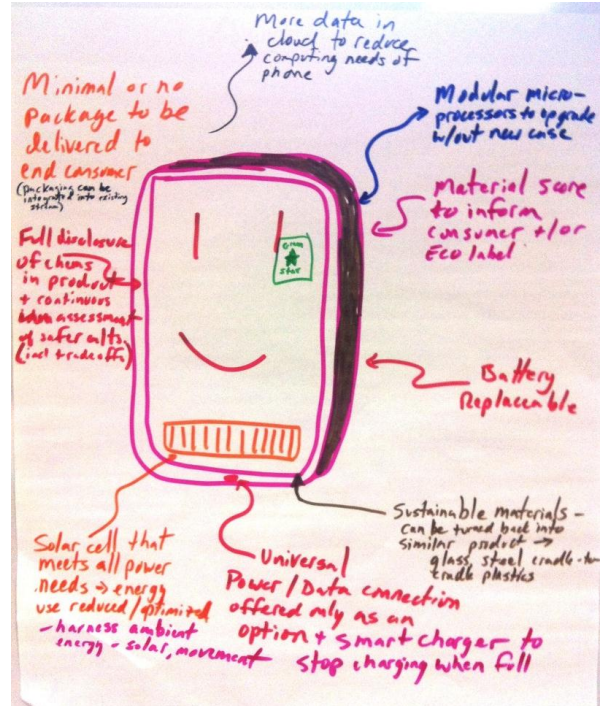 More data in
cloud to reduce
computing needs of
phone
Minimal or no
package to be
delivered to
end consumer
(packaging can be
integrated into existing
stream)
Modular micro-
processors to upgrade
w/out new case
Material score
to inform
consumer +/or
Eco label
Full disclosure
of chems
in product
+ continuous
assessment
of safer alts.
(incl tradeoffs)
star
Battery
Replaceable
Sustainable materials -
can be turned back into
similar product →
glass, steel cradle-to-
cradle plastics
Solar cell that
meets all power
needs → energy
use reduced/optimized
- harness ambient
energy - solar, movement
Universal
Power/Data connection
offered only as an
option + smart charger to
stop charging when full